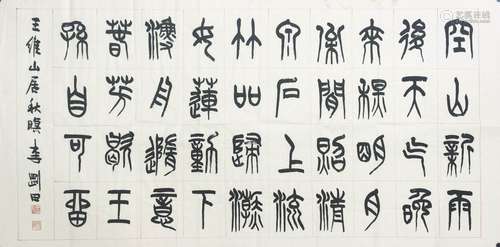 空山新雨
後天气晚
來秋明月
松間照清
泉石上流
竹喧歸浣
女蓮動下
漁舟隨意
春芳歇王
孫自可留
王維山居秋暝 李剛田